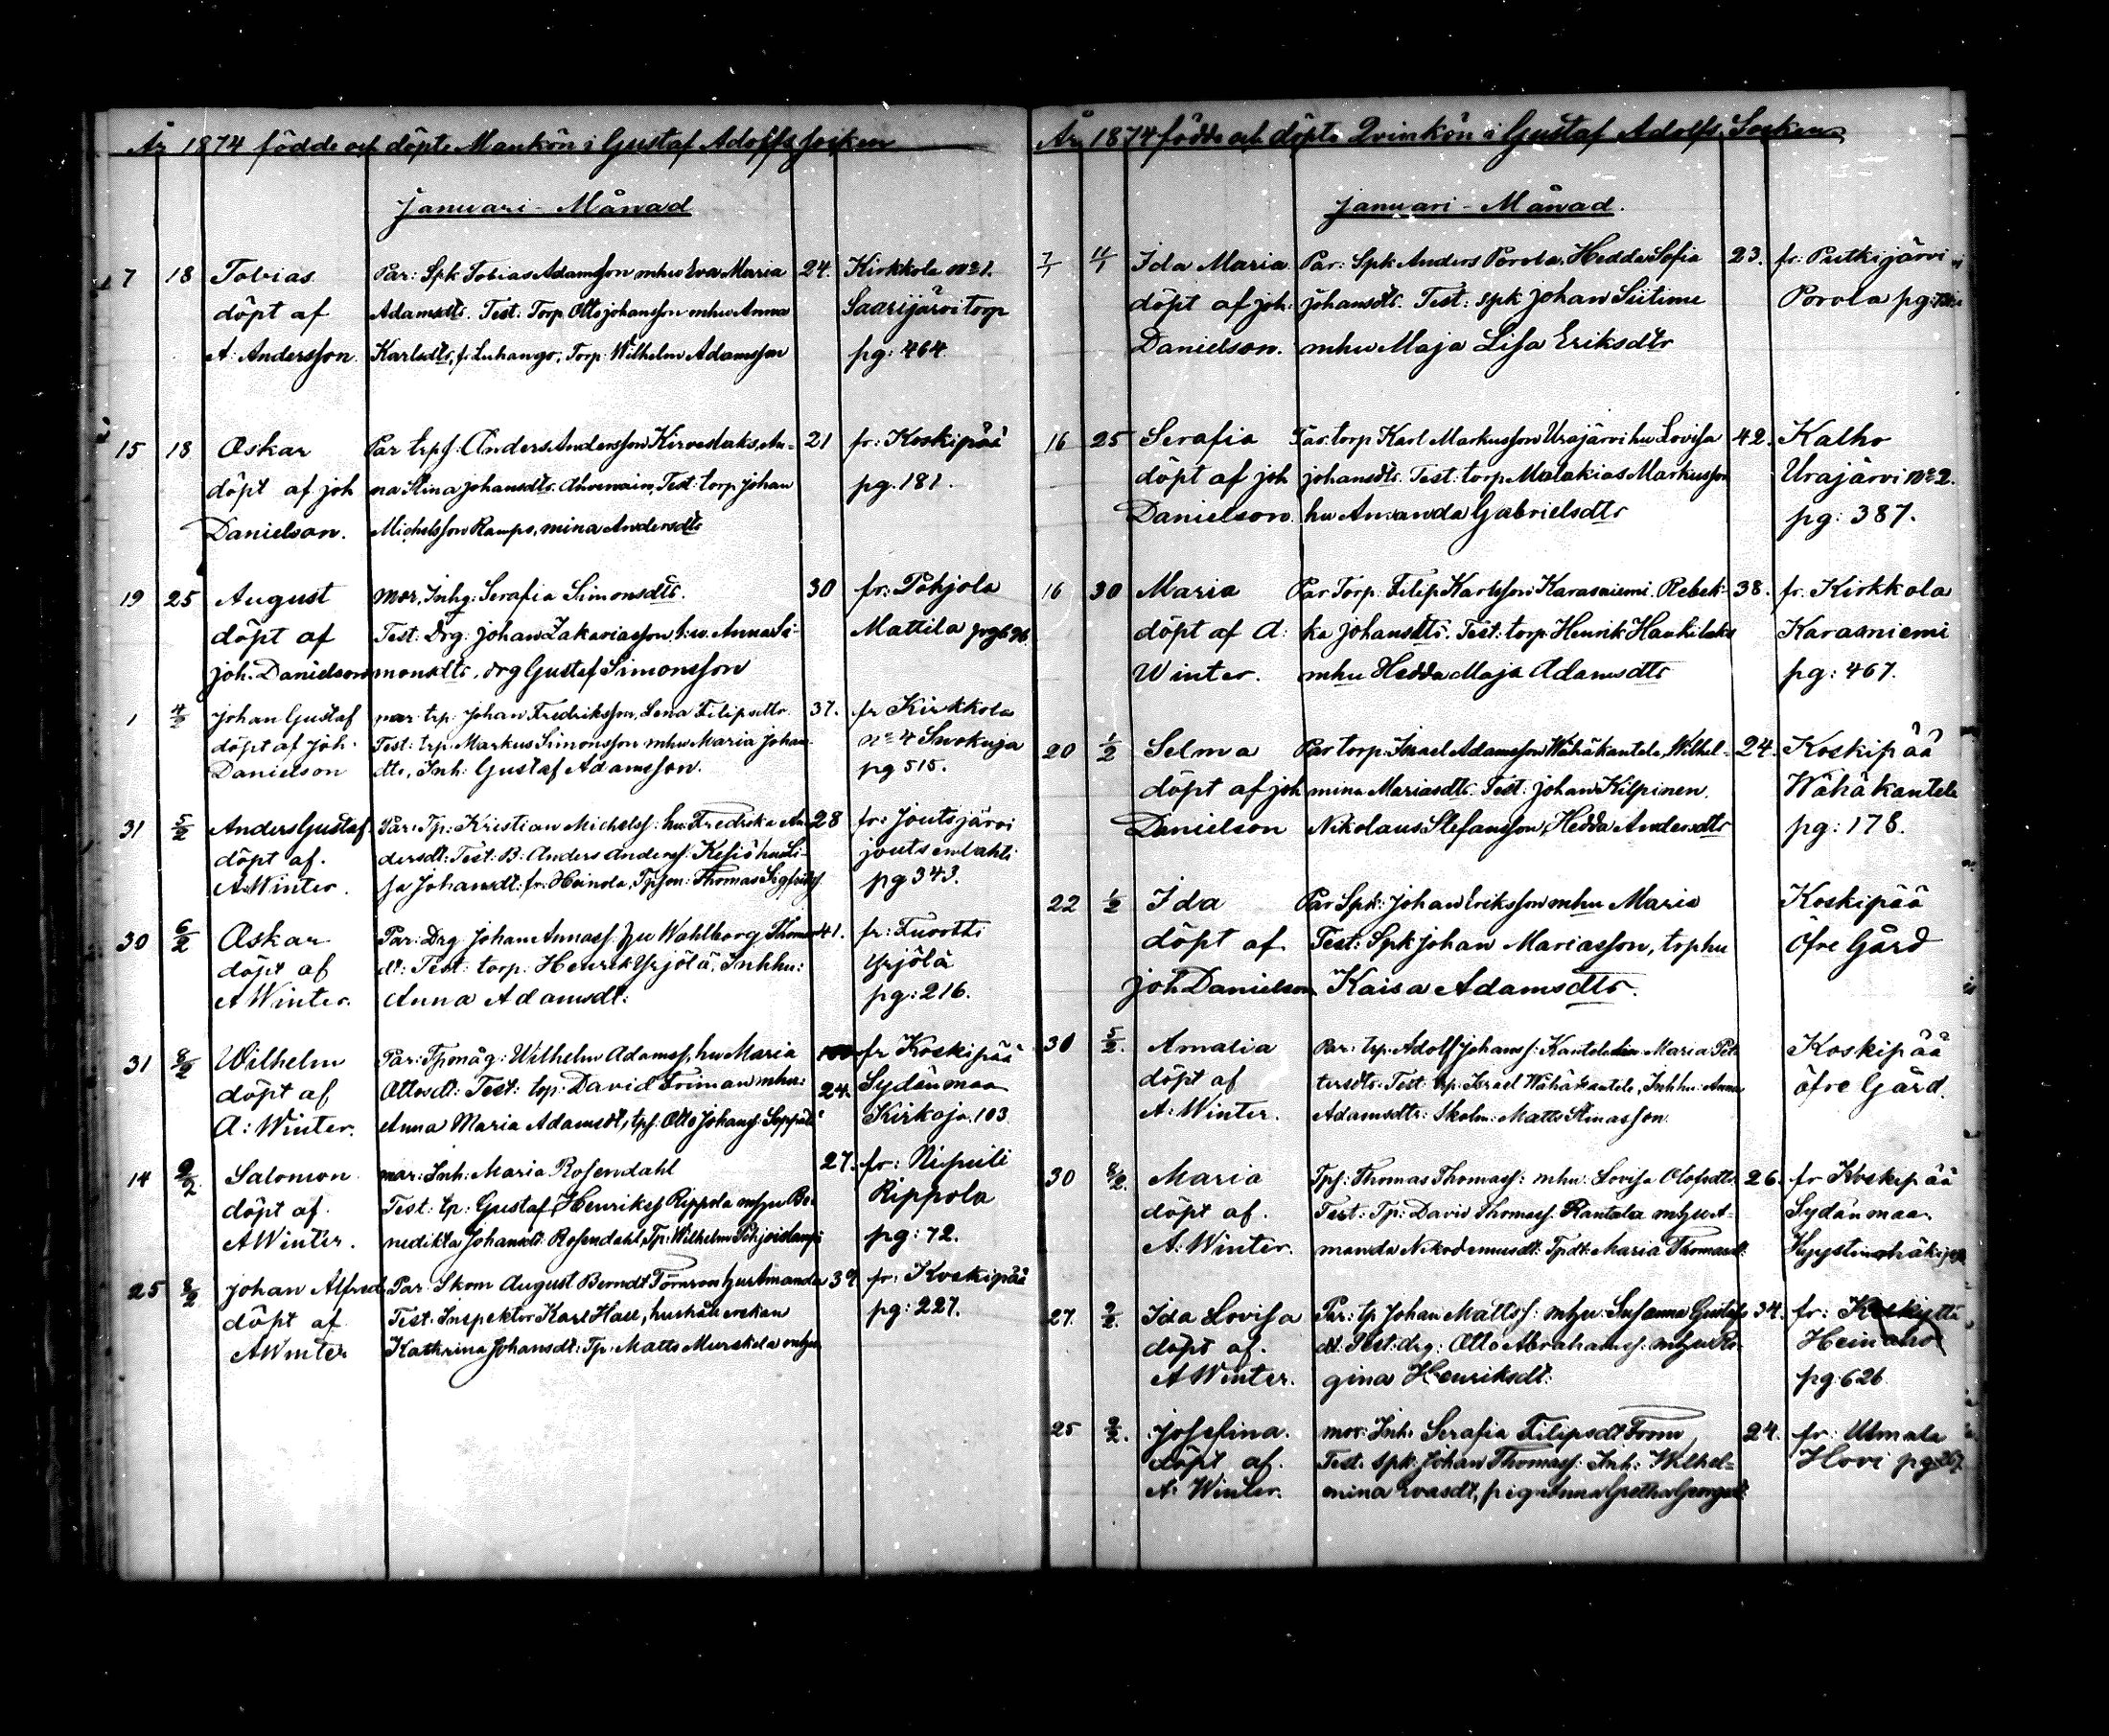 År 1874 födde och döpte Mankön i Gustaf Adolfs socken
Januari - Månad
7 18 Tobias Par: Spk Tobias Adamsson mhu Eva Maria 24. Kirkkola No 1.
döpt af Adamsdtr. Test: Torp Otto Johansson mhu Anna Saarijärvi torp
A. Andersson. Karlsdtr, f. Luhango, Torp: Wilhelm Adamsson pg: 464
15 18 Oskar Par trpf: Anders Andersson Kirvestaks, An- 21 fr: Koskipää
döpt af Joh na Stina Johansdtr. Ahvenain, Test: torp Johan pg. 181.
Danielson. Michelsson Rampo, mina Andersdtr
19 25 August mor, Inhg: Serafia Simonsdtr. 30 fr: Pohjola
döpt af Test: Drg: Johan Zakariasson, h:u. Anna Si- Mattila
joh. Danielson monsdtr, drg Gustaf Simonsson
1 4/2 Johan Gustaf par: trp: Johan Fredriksson, Lena Filipsdtr 37. fr Kirkkola
döpt af Joh. Test: trp: Markus Simonsson mhu Maria Johan- No 4 Snokuja
Danielson dtr, Inh: Gustaf Adamsson. pg 515.
31 5/2 Anders Gustaf Par: Tp: Kristian Michelss: hu: Fredrika An- 28 fr: Joutsjärvi
döpt af. dersdt: Test: B: Anders Anderss: Kesiö hu Li- joutsenlahti
A Winter. sa Johansdt: fr: Heinola, Tpson: Thomas Sigfridss pg 343.
30 6/2 Oskar Par: Drg Johan Annass. hu Wahlborg Thomas 41. fr: Kuortti
döpt af dt: Test: torp: Henrik Yrjölä, Inhhu: Yrjölä
A Winter. Anna Adamsdt: pg: 216.
31 8/2 Wilhelm Par: Tpmåg: Wilhelm Adamss, hu Maria fr Koskipää
döpt af Ottosdt: Test: tp: David Friman mhu: 24. Sydänmaa
A: Winter. Anna Maria Adamsdt, tpf: Otto Johanss: Seppälä Kirkoja 103
14 9/2 Salomon mor: Inh: Maria Rosendahl 27. fr: Nipuli
döpt af. Test: tp: Gustaf Henrikss Rippola mhu Be- Rippola
A Winter. nedikta Johansdt: Rosendahl, Tp: Wilhelm Pohjoislampi pg: 72.
25 8/2 Johan Alfred Par. Skom August Berndt Törnroos hu Amanda 39 fr: Koskipää
döpt af Test: Inspektor Karl Hall, hushållerskan pg: 227.
A Winter Kathrina Johansdt: Tp: Matts Murskela mhu
År 1874 födde och döpte Qvinkön i Gustaf Adolfs Socken
Januari - Månad.
7/1 11/1 Ida Maria Par: Spk Anders Porola, Hedda Sofia 23. fr: Putkijärvi
döpt af joh. Johansdtr. Test: spk Johan Siitime Porola pg:
Danielson. mhu Maja Lisa Eriksdtr
16 25 Serafia Par: torp Karl Markusson Urajärvi hu Lovisa 42. Kalho
döpt af joh johansdtr. Test: torp Malakias Markusson Urajärvi No 2.
Danielson hu Amanda Gabrielsdtr pg: 387.
16 30 Maria Par Torp: Filip Karlsson Karasniemi, Rebek- 38. fr. Kirkkola
döpt af A: ka johansdtr. Test: torp: Henrik Haukilaks Karasniemi
Winter. mhu Hedda Maja Adamsdtr pg: 467.
20 1/2 Selma Par torp: Israel Adamsson Wähäkantele, Wilhel- 24. Koskipää
döpt af joh mina Mariasdtr. Test: Johan Kilpinen. Wähäkantele
Danielson Nikolaus Stefansson, Hedda Andersdtr pg: 178.
22 1/2 Ida Par Spk: Johan Eriksson mhu Maria Koskipää
döpt af Test: Spk Johan Mariasson, torphu Öfre Gård
joh Danielson Kaisa Adamsdtr.
31 5/2. Amalia Par: trp: Adolf Johanss: Kantele hu Maria Pet- Koskipää
döpt af tersdtr: Test: trp: Israel Wähäkantele, Inhhu: Anna öfre Gård.
A: Winter. Adamsdtr: Skolm: Matts Stinasson.
30 8/2. Maria Tpf: Thomas Thomass: mhu: Lovisa Olofsdtr 26. fr Koskipää
döpt af. Test: Tp: David Thomass: Rantala mhu A- Sydänmaa
A: Winter. manda Nikodemusdt: Tpdt: Maria Thomasdt:
27. 9/2. Ida Lovisa Par: tp Johan Mattss: mhu: Susanna Gustafs 34. fr:
döpt af. dt: Test: drg: Otto Abrahamss: mhu Re- Heinaho
A Winter. gina Henriksdt: pg: 626
25 9/2. Josefina. mor: Inh: Serafia Filipsdt Form 24. fr: Ulmala
döpt af. Test. Spk: Johan Thomass: Inh: Wilhel- Hovi pg:
A: Winter. mina Evasdt, piga Anna Gretha Georgsdt.